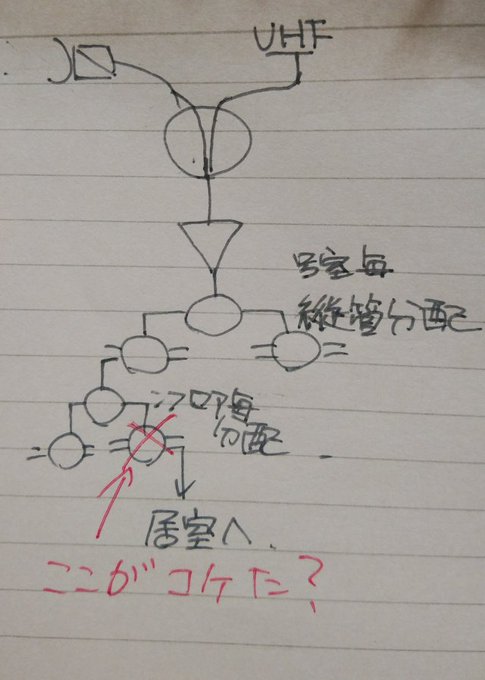 UHF
号室毎
縦管分配
分配
居室へ.
ここがコケた?